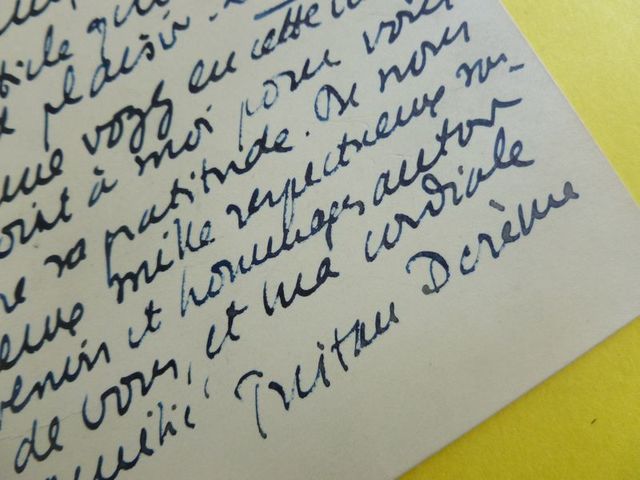 plaisir.
me voyez en cette
à moi pour vous
sa gratitude. De nous
mille respectueux sou-
venirs et hommages autour
de vous, et ma cordiale
amitié. Tristan Derème